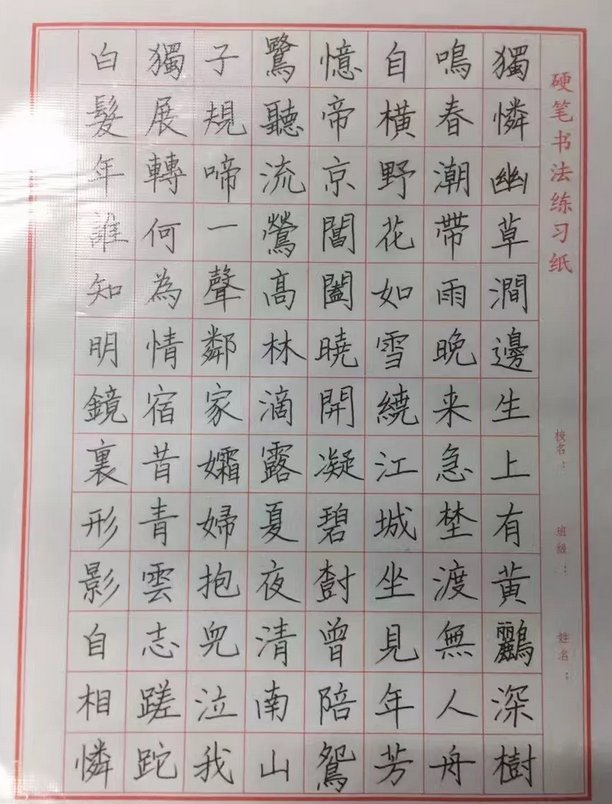 硬笔书法练习纸
校名：
班级：
姓名：
獨憐幽草澗邊生上有黃鸝深樹
鳴春潮帶雨晚来急埜渡無人舟
自橫野花如雪繞江城坐見年芳
憶帝京閶闔曉開凝碧尌曾陪鴛
鷺聽流鶯高林滴露夏夜清南山
子規啼一聲鄰家孀婦抱兒泣我
獨展轉何為情宿昔青雲志蹉跎
白髮年誰知明鏡裏形影自相憐